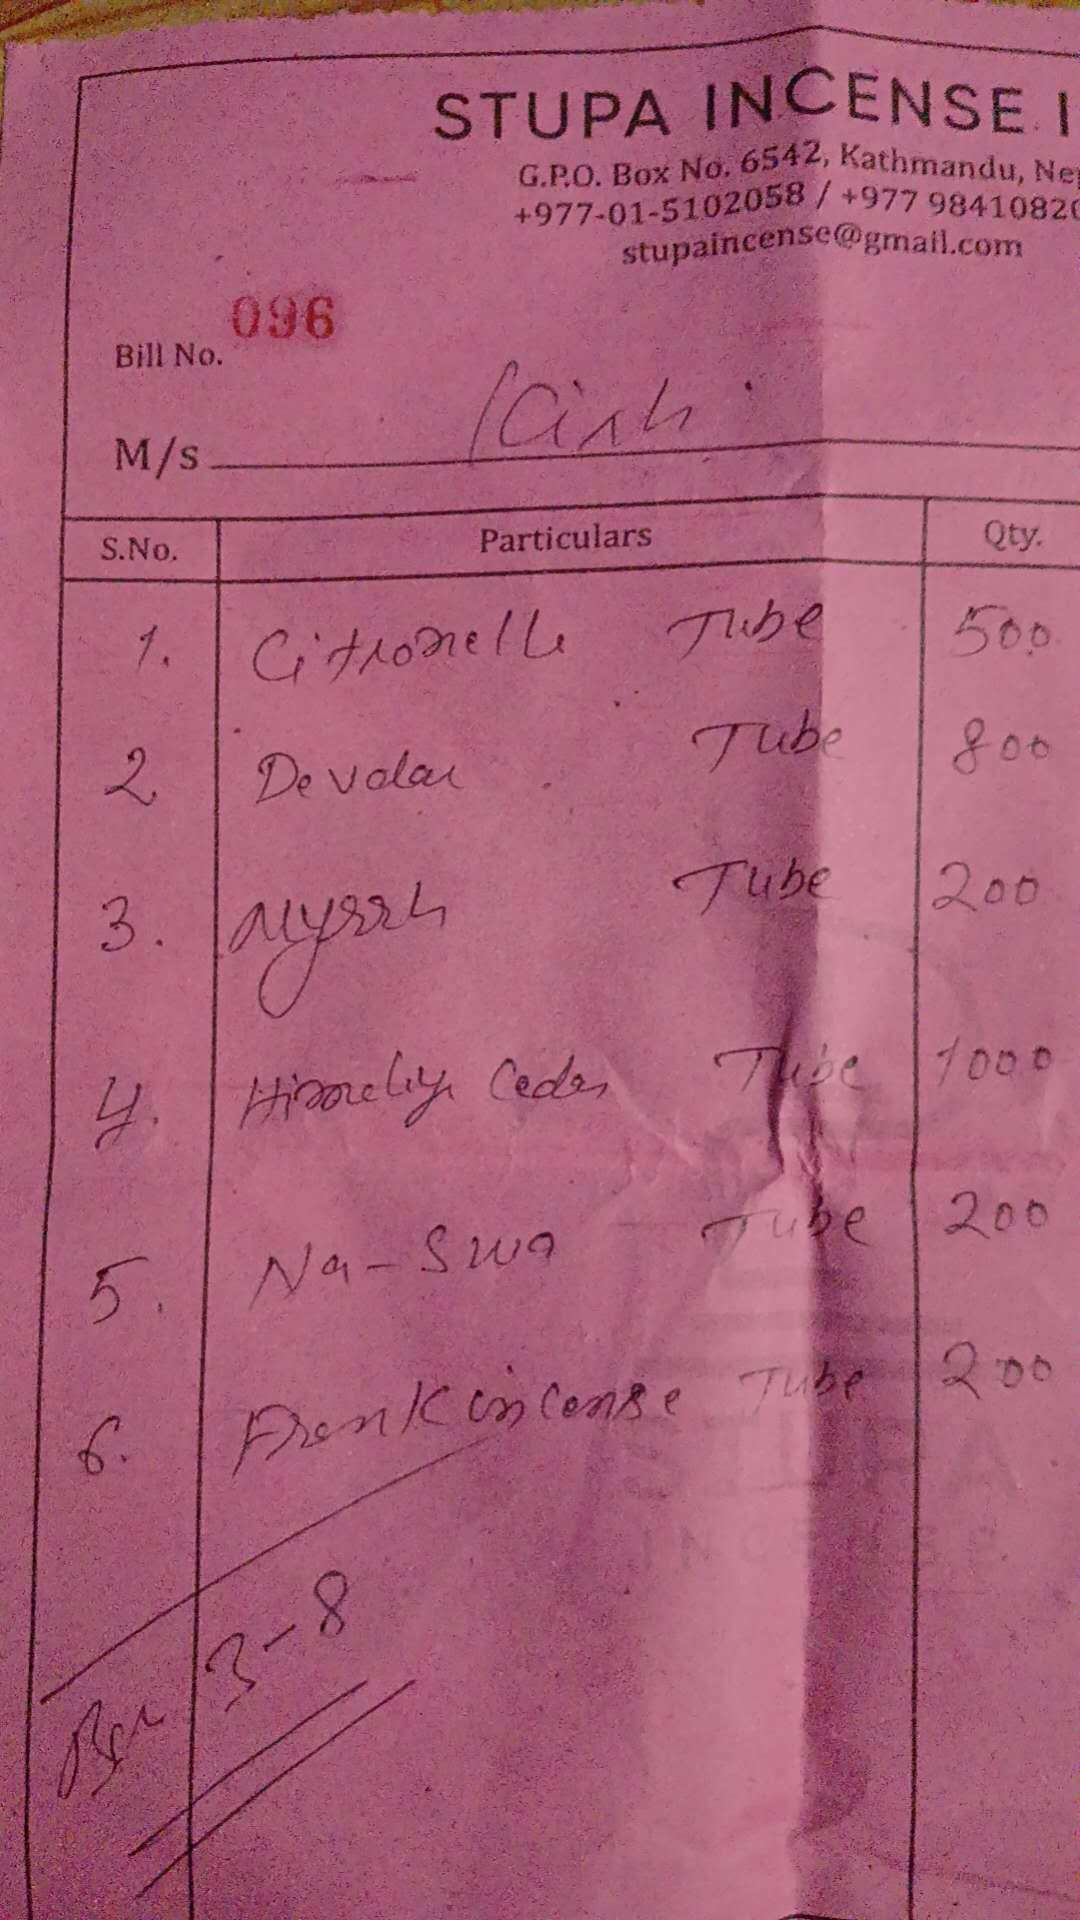 STUPA INCENSE I
G.P.O. Box No. 6542, Kathmandu, Nep
+977-01-5102058 / +977 98410820
stupaincense@gmail.com
Bill No. 096
M/s
S.No. Particulars Qty.
1. Citronella Tube 500
2 Devdar Tube 800
3. Myrrh Tube 200
4. Himaliya Ceder Tube 1000
5. Na-Swa Tube 200
6. Frankincense Tube 200
3-8
STUPA
INCENSE